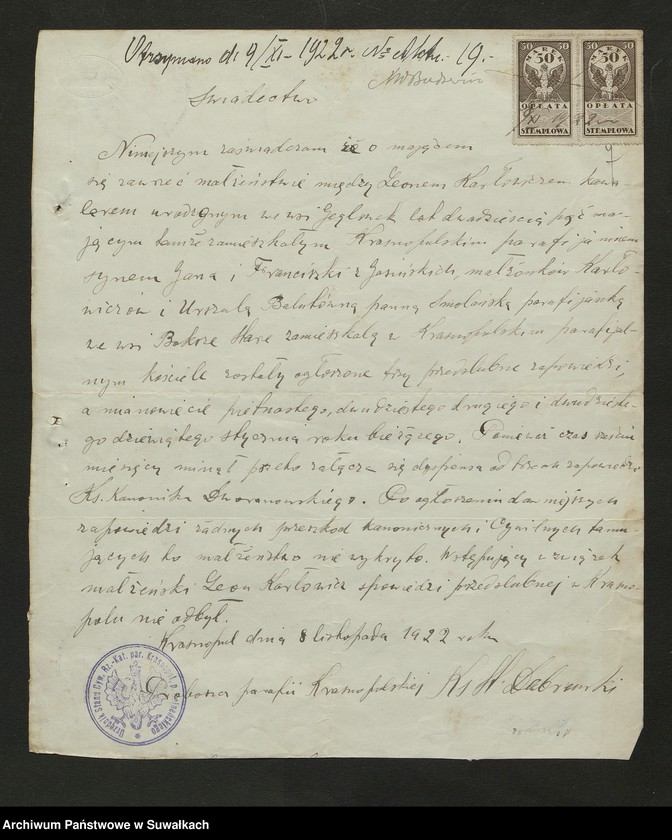 Otrzymano d. 9/XI - 1922 r. № Aktu - 19.-
50 50 50 50
MAREK MAREK
50 50
OPŁATA OPŁATA
STEMPLOWA STEMPLOWA
Świadectwo
Niniejszym zaświadczam że o mającem
się zawrzeć małżeństwie między Leonem Karłowiczem kawa-
lerem urodzonym we wsi Jegliniec lat dwadzieścia pięć ma-
jącym tamże zamieszkałym Krasnopolskim parafijaninem
synem Jana i Franciszki z Jasińskich, małżonków Karło-
wiczów i Urszulą Balutówną panną Smolańską parafijanką
we wsi Boksze Stare zamieszkałą w Krasnopolskim parafijal-
nym kościele zostały ogłoszone trzy przedślubne zapowiedzi,
a mianowicie piętnastego, dwudziestego drugiego i dwudzieste-
go dziewiątego stycznia roku bieżącego. Ponieważ czas sześciu
miesięcy minął przeto załącza się dyspensa od trzech zapowiedzi
Ks. Kanonika Dworanowskiego. Po ogłoszeniu dan niniejszych
zapowiedzi żadnych przeszkód kanonicznych i cywilnych tamu-
jących to małżeństwo nie wykryto. Wstępujący w związek
małżeński Leon Karłowicz spowiedzi przedślubnej w Krasno-
polu nie odbył.
Krasnopol dnia 8 listopada 1922 roku
Proboszcz parafii Krasnopolskiej Ks. St. Dąbrowski
Urzędnik Stanu Cyw. Rz.-Kat. par. Krasnopol, p. Sejneńskiego
Archiwum Państwowe w Suwałkach